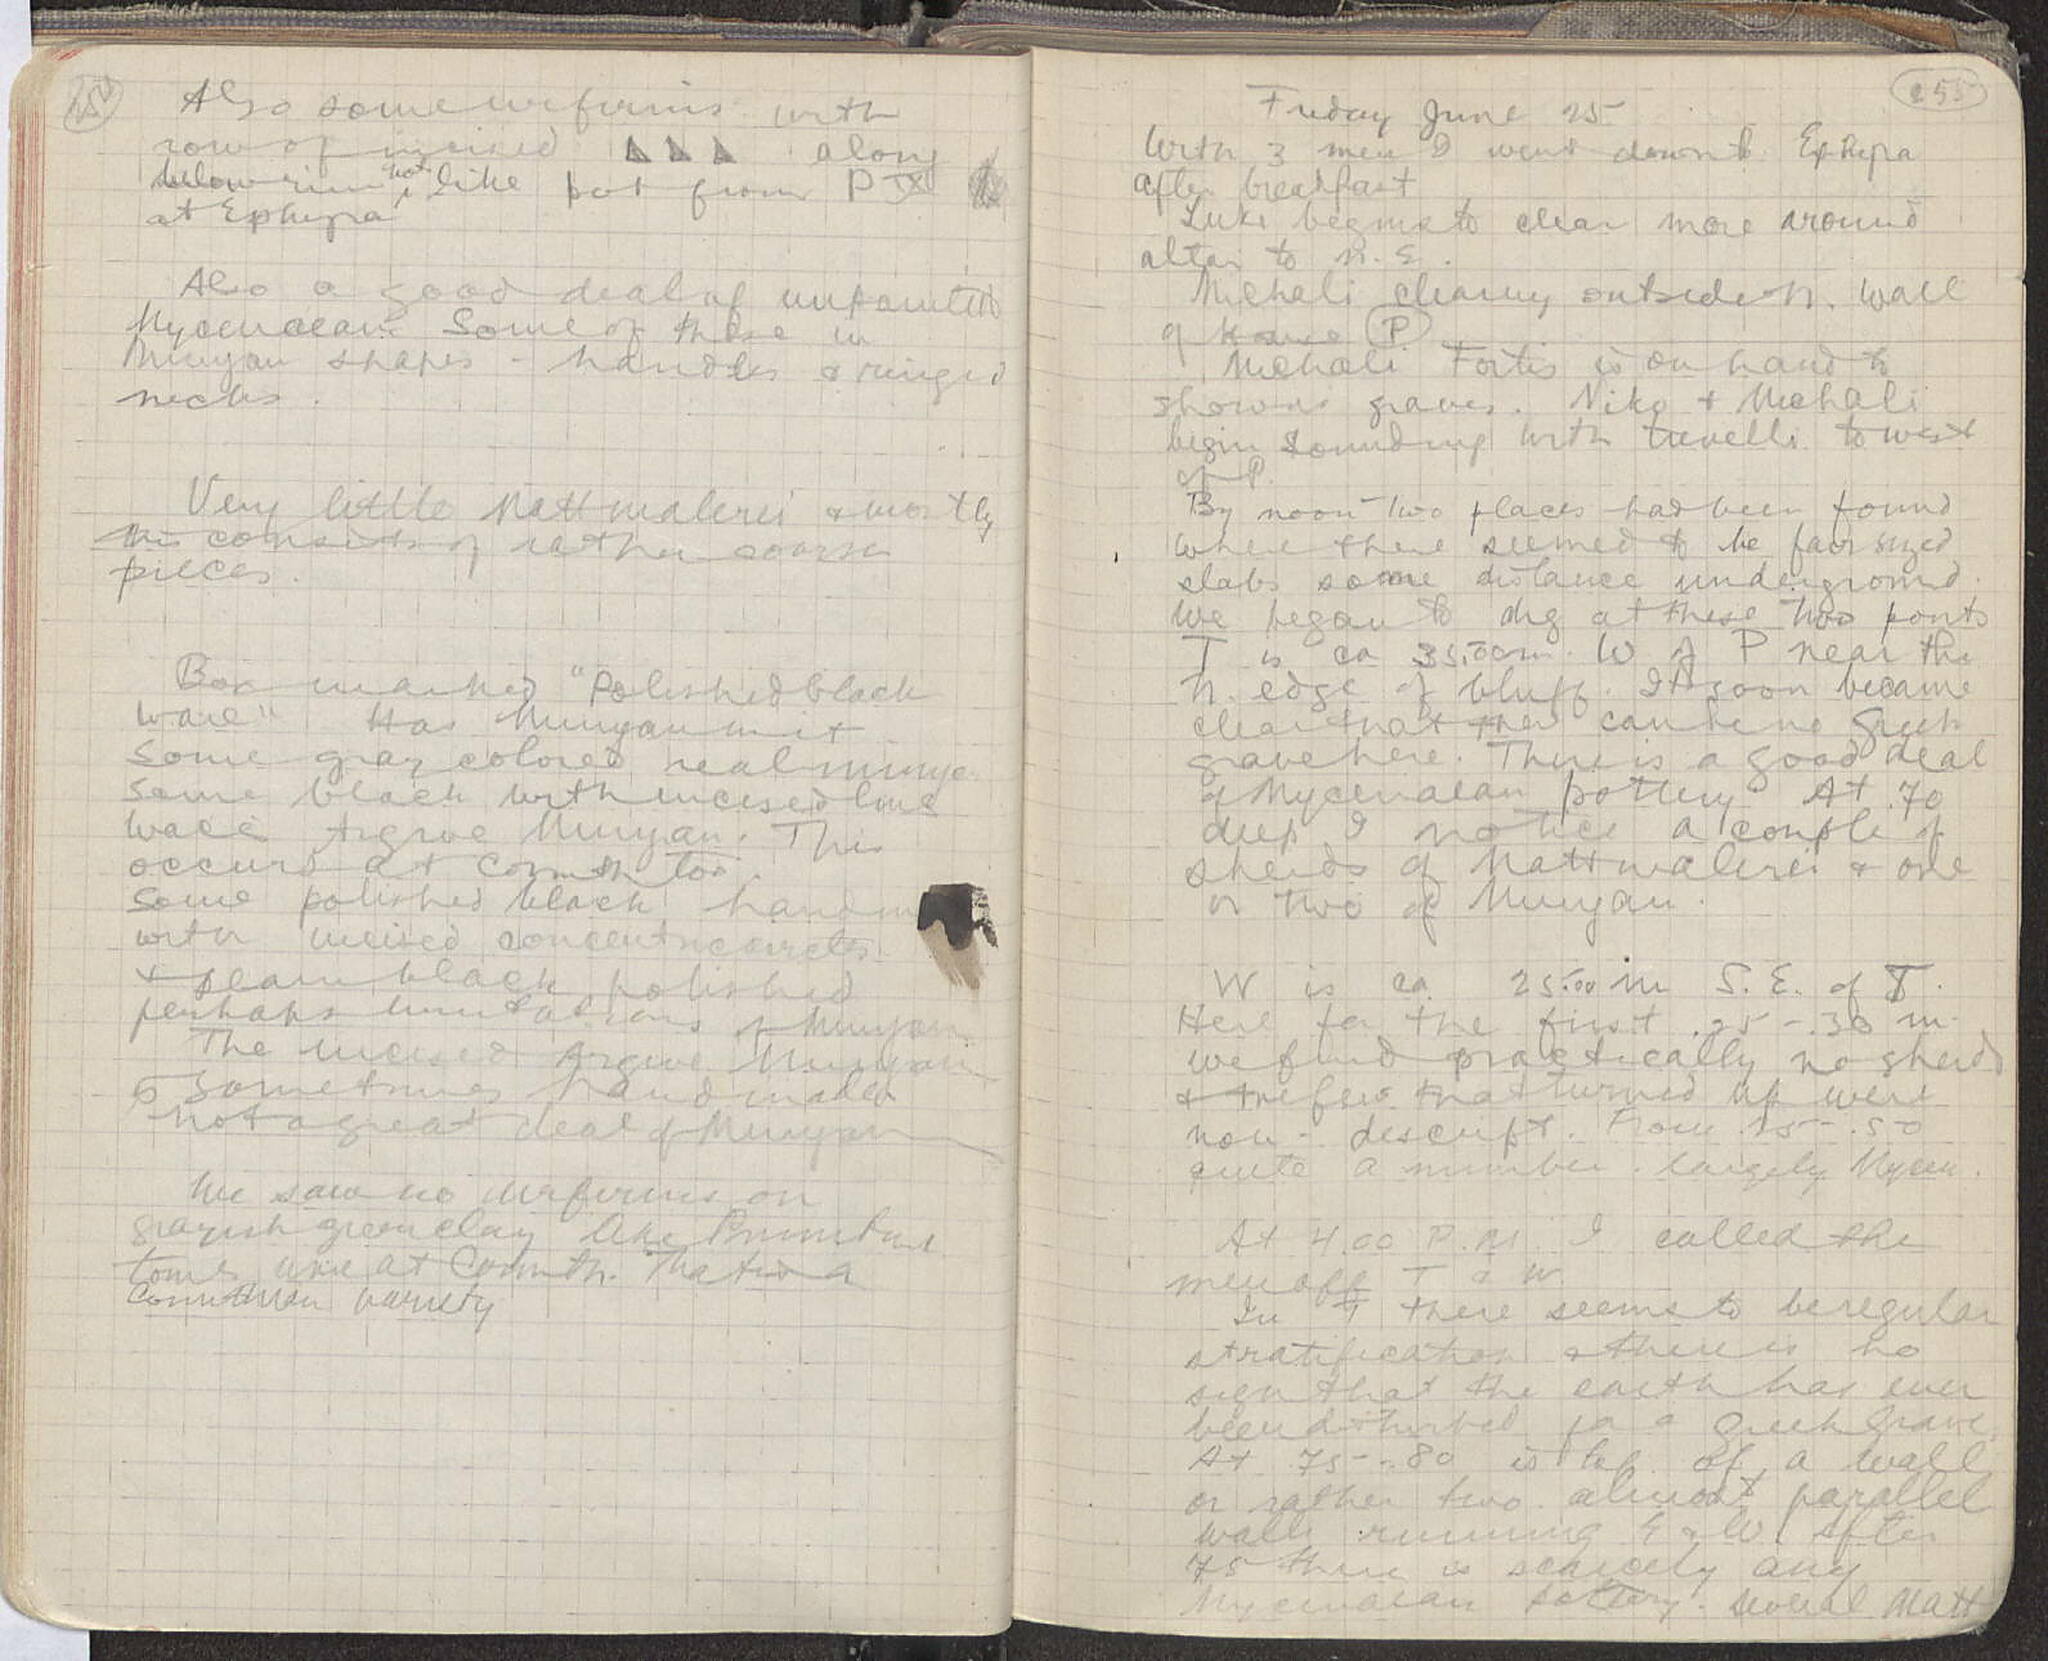 Also some urfirnis with
row of incised along
below rim not like pot from P IX
at Ephyra
Also a good deal of unpainted
Mycenaean. Some of these in
Minyan shapes - handles & ringed
necks.
Very little Mattmalerei & mostly
this consists of rather coarse
pieces.
Box marked "Polished black
ware" Has Minyan in it
some gray colored real Minyan
some black with incised lines
Wace's Argive Minyan. This
occurs at Corinth too.
Some polished black handm
with incised concentric circles
& plain black polished
perhaps imitations of Minyan.
The incised Argive Minyan
is sometimes handmade
not a great deal of Minyan
We saw no urfirnis on
grayish green clay like
ware at Corinth. That is a
Corinthian variety
255
Friday June 25
With 3 men I went down to Ephyra
after breakfast
Luki begins to clear more around
altar to N.E.
Michali clearing outside N. wall
of house P
Michali Fortis is on hand to
show us graves. Niko & Michali
begin sounding with trivelli to west
of P.
By noon two places had been found
where there seemed to be fair sized
slabs some distance underground.
We began to dig at these two points
T is ca 35.00 m. W of P near the
N. edge of bluff. It soon became
clear that there can be no Greek
grave here. There is a good deal
of Mycenaean pottery. At .70
deep I notice a couple of
sherds of Mattmalerei & one
or two of Minyan.
W is ca. 25.00 m S.E. of T.
Here for the first .25 - .30 m.
we find practically no sherds
& the few that turned up were
non-descript. From .25 - .50
quite a number. largely Mycen.
At 4.00 P.M. I called the
men off T & W.
In T there seems to be regular
stratification & there is no
sign that the earth has ever
been disturbed for a Greek Grave.
At .75 - .80 is top of a wall
or rather two almost parallel
walls running E & W. After
.75 there is scarcely any
Mycenaean pottery. Several Matt